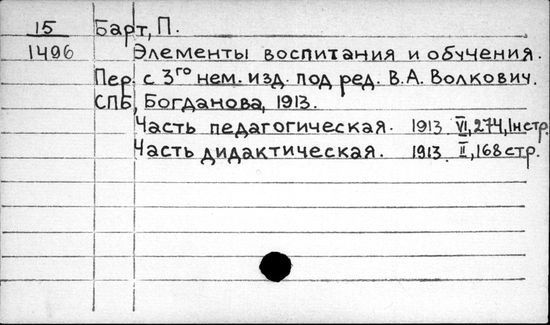 15 Барт, П.
1496 Элементы воспитания и обучения.
Пер. с 3го нем. изд. под ред. В.А. Волкович.
СПБ, Богданова, 1913.
Часть педагогическая. 1913 VI, 274, Iнстр.
Часть дидактическая. 1913. II, 168 стр.